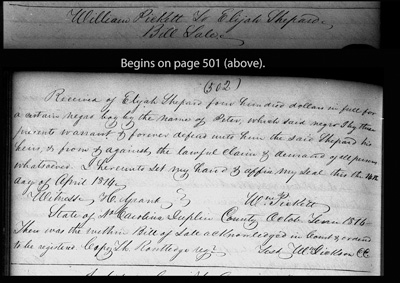 William Pickett To Elijah Shepard
Bill Sale
Begins on page 501 (above).
(502)
Received of Elijah Shepard four hundred dollars in full for
a certain negro boy by the name of Peter, which said negro I by these
presents warrant & forever defend unto him the said Shepard his
heirs, & from & against the lawful Claim & demand of all persons
whatsoever I hereunto set my hand & affix my Seal this the 14th
day of April 1814
Witness Wm Pickett
State of No Carolina Duplin County Octob. Term 1814
Then was the within Bill of Sale acknowledged in Court & ordered
to be registered Copy Routledge regr Test Wm Dickson CC